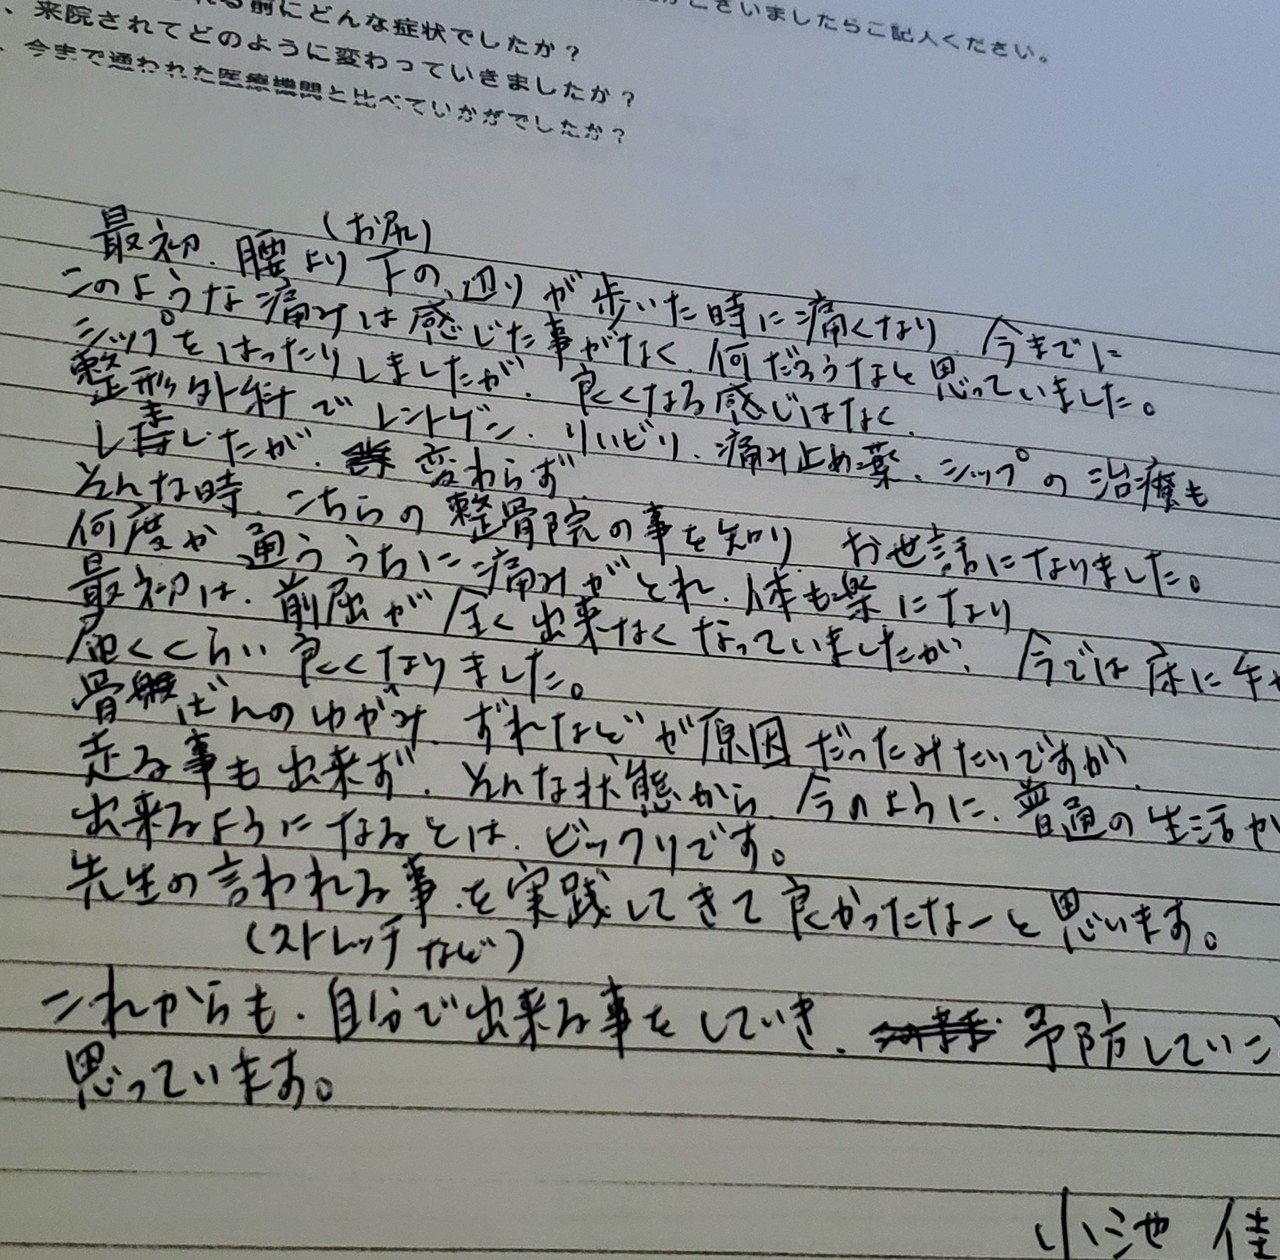 ございましたらご記入ください。
れる前にどんな症状でしたか？
、来院されてどのように変わっていきましたか？
、今まで通われた医療機関と比べていかがでしたか？
(お尻)
最初、腰より下の辺りが歩いた時に痛くなり、今までに
このような痛みは感じた事がなく、何だろうなと思っていました。
シップをはったりしましたが、良くなる感じはなく、
整形外科でレントゲン、リハビリ、痛み止め薬、シップの治療も
しましたが、変わらず
そんな時、こちらの整骨院の事を知り、お世話になりました。
何度か通ううちに痛みがとれ、体も楽になり
最初は、前屈が全く出来なくなっていましたが、今では床に手が
届くくらい良くなりました。
骨ばんのゆがみ、ずれなどが原因だったみたいですが、
走る事も出来ず、そんな状態から、今のように、普通の生活が
出来るようになるとは、ビックリです。
先生の言われる事を実践してきて良かったなーと思います。
(ストレッチなど)
これからも、自分で出来る事をしていき、予防していこ
思っています。
小池 佳